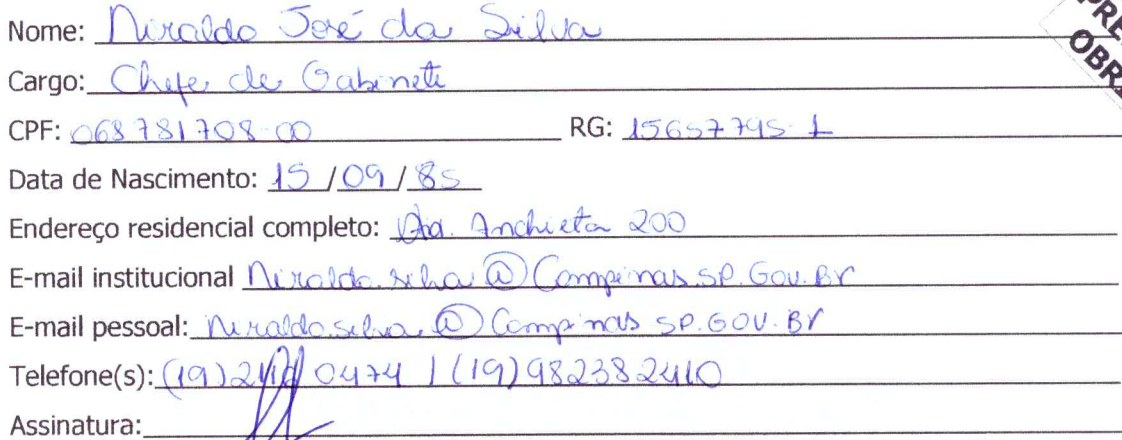 PRE
OBRI
Nome: Niraldo José da Silva
Cargo: Chefe de Gabinete
CPF: 068781708-00 RG: 15657795-1
Data de Nascimento: 15/09/85
Endereço residencial completo: Anchieta 200
E-mail institucional Niraldo.silva@Campinas.SP.Gov.Br
E-mail pessoal: Niraldo.silva@Campinas SP.GOV.Br
Telefone(s): (19) 0474 / (19)982382410
Assinatura: